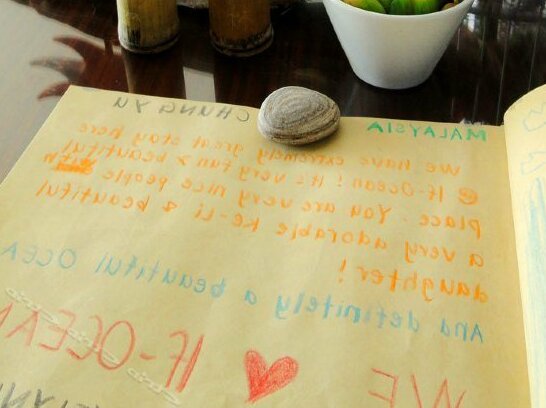 MALAYSIA CHUNG YU
We have extremely great stay here
@ If-Ocean! It's very fun & beautiful
place. You are very nice people with
a very adorable Ke-Li & beautiful
daughter!
And definitely a beautiful OCEA
WE ♥ IF-OCEAN